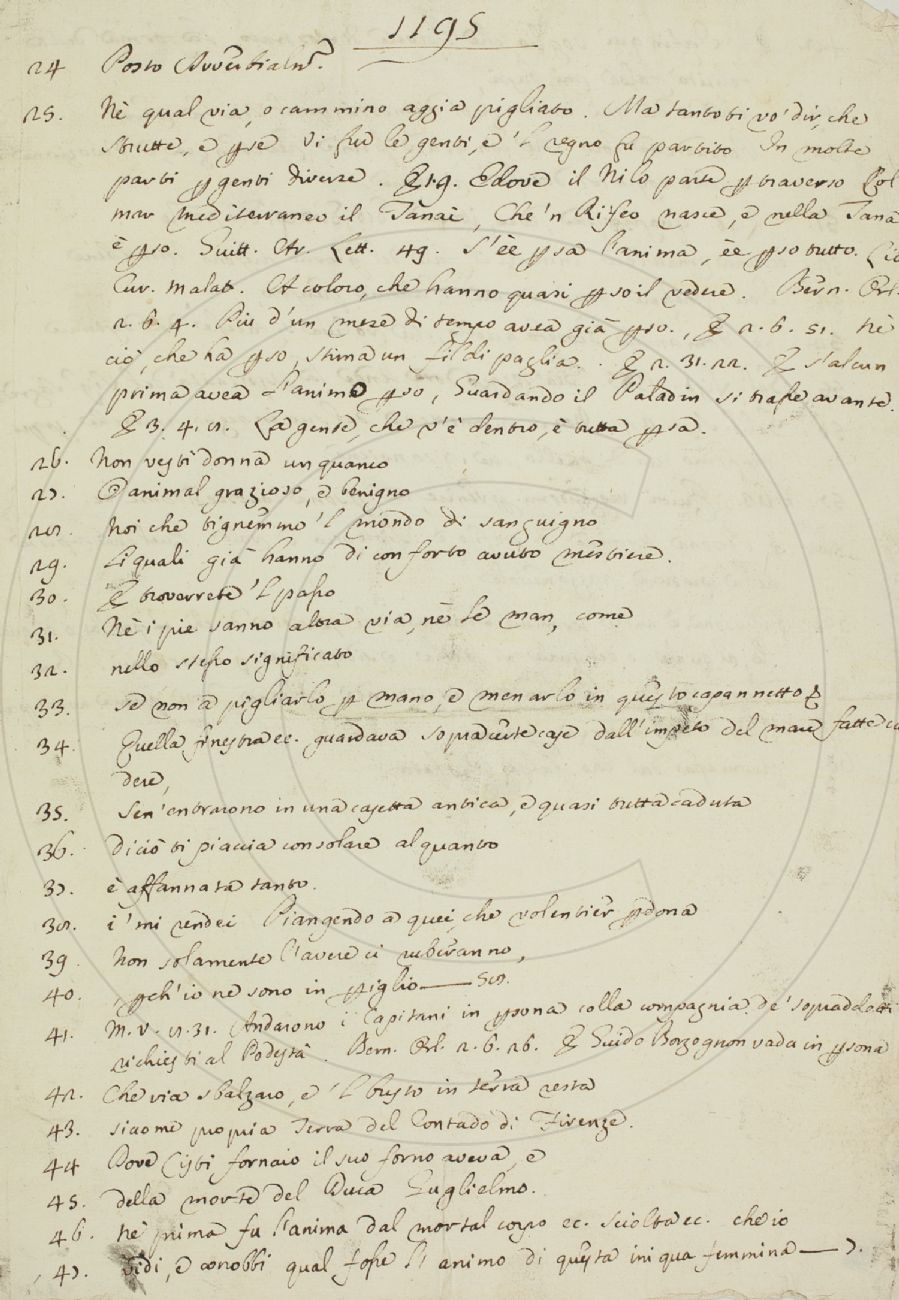 1195
24 Posto Avverbialm.
25. Nè qual via, o cammino aggia pigliato. Ma tanto ti vo' dir, che
strutte, e pse vi fur le genti, e 'l regno fu partito In molte
parti p genti diverse. E 19. Edove il Nilo parte p traverso Col
mar mediterraneo il Tanai, Che 'n Rifeo nasce, e nella Tana
è pso. Guitt. Ar. Lett. 49. S'èe psa l'anima, èe pso tutto.
Cur. malat. A coloro, che hanno quasi pso il vedere. Bern. Orl.
2. 6. 4. Piu d'un mese di tempo avea già pso., E 2. 6. 51. Nè
ciò, che ha pso, stima un fil di paglia. E 2. 31. 22. E s'alcun
prima avea l'animo pso, Guardando il Paladin si trasse avante.
E 3. 4. 8. La gente, che v'è dentro, è tutta psa.
26. Non vesti donna unquanco
27. O animal grazioso, e benigno
28. Noi che tignemmo 'l mondo di sanguigno
29. Liquali già hanno di conforto avuto mestiere.
30. E troverrete 'l passo
31. Nè i pie sanno altra via, nè le man, come
32. nello stesso significato
33. se non a pigliarlo p mano, e menarlo in questo capannetto E
34. Quella finestra ec. guardava sopra certe case dall'impeto del mare fatte ca
dere,
35. Sen' entrarono in una casetta antica, e quasi tutta caduta
36. Di ciò ti piaccia consolare alquanto
37. è affannata tanto.
38. i' mi rendei Piangendo a quei, che volentier pdona
39. Non solamente l'avere ci ruberanno,
40. pch'io ne sono in piglio — 58.
41. M. V. 8. 31. Andarono i Capitani in psona colla compagnia de' sopraddetti
richiesti al Podestà. Bern. Orl. 2. 6. 26. E Guido Borgognon vada in psona
42. Che via sbalzaro, e 'l busto in terra resta
43. siccome propria Terra del Contado di Firenze.
44 Dove Cisti fornaio il suo forno aveva, e
45. della morte del Duca Guglielmo.
46. nè prima fu l'anima dal mortal corpo ec. sciolta ec. che io
47. vidi, e conobbi qual fosse l' animo di questa iniqua femmina — 7.